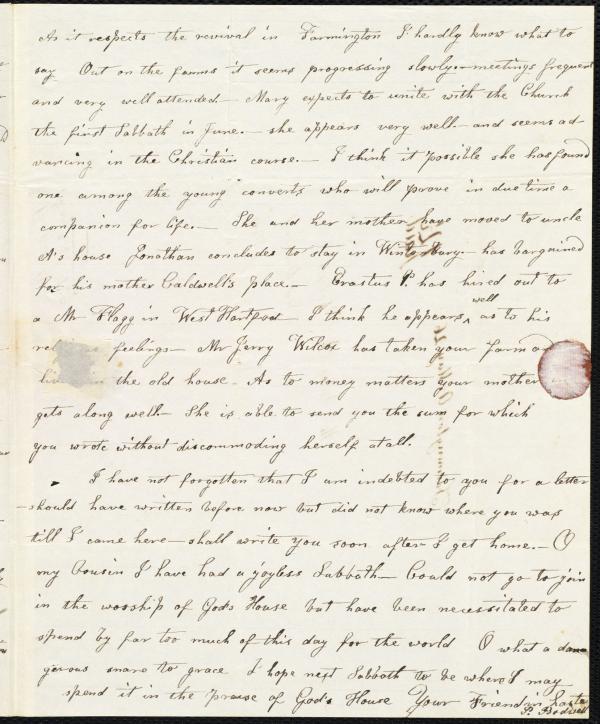 As it respects the revival in Farmington I hardly know what to
say Out on the farms it seems progressing slowly.— meetings frequent
and very well attended.— Mary expects to unite with the Church
the first Sabbath in June.— she appears very well.— and seems ad
vancing in the Christian course.— I think it possible she has found
one among the young converts who will prove in due time a
companion for life.— She and her mother have moved to uncle
A's house Jonathan concludes to stay in Wintonbury— has bargained
for his mother Caldwell's place.— Erastus P. has hired out to
a Mr Flagg in West Hartford— I think he appears well as to his
feelings— Mr Jerry Wilcox has taken your farm
the old house. As to money matters your mother
gets along well— She is able to send you the sum for which
you wrote without discommoding herself at all.
I have not forgotten that I am indebted to you for a letter
—should have written before now but did not know where you was
till I came here— shall write you soon after I get home.— O
my Cousin I have had a joyless Sabbath— Could not go to join
in the worship of God's House but have been necessitated to
spend by far too much of this day for the world O what a dan
gerous snare to grace I hope next Sabbath to be where I may
spend it in the praise of God's House Your Friend in haste